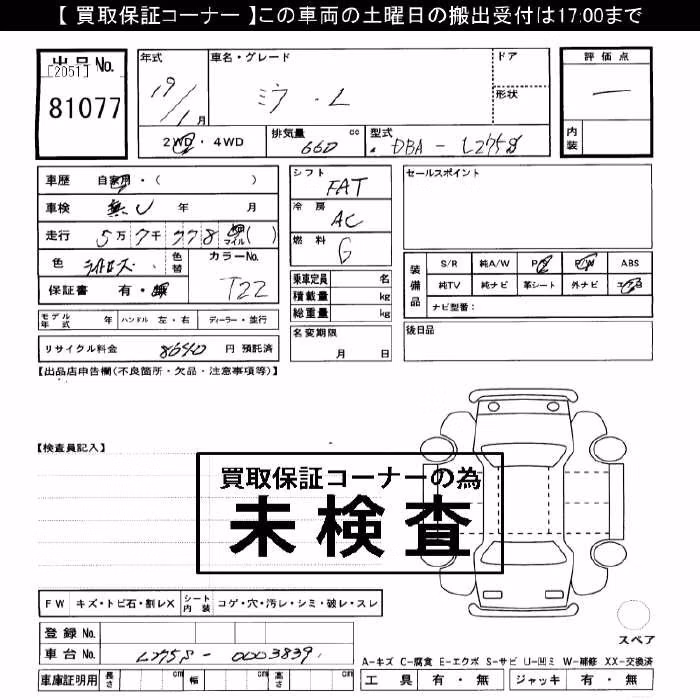 【 買取保証コーナー 】この車両の土曜日の搬出受付は17:00まで
出品No.
[2051]
81077
年式
19/1月
車名・グレード
ミラ・L
ドア
形状
評価点
一
内装
2WD・4WD
排気量 660 cc
型式 DBA - L275S
車歴 自家用・( )
車検 無し 年 月
走行 5万7千778 km マイル ( )
色 ライトローズ
色替
カラーNo. T22
保証書 有・無
シフト FAT
冷房 AC
燃料 G
乗車定員 名
積載量 kg
総重量 kg
セールスポイント
装備品
S/R 純A/W P/S P/W ABS
純TV 純ナビ 革シート 外ナビ エアB
ナビ型番:
モデル年式 年 ハンドル 左・右 ディーラー・並行
名変期限 月 日
後日品
リサイクル料金 8640 円 預託済
【出品店申告欄(不良箇所・欠品・注意事項等)】
【検査員記入】
買取保証コーナーの為
未検査
FW キズ・トビ石・割レX
シート内装 コゲ・穴・汚レ・シミ・破レ・スレ
スペア
登録 No.
車台 No. L275S - 0003839
A-キズ C-腐食 E-エクボ S-サビ U-凹ミ W-補修 XX-交換済
車庫証明用 長さ cm 幅 cm 高さ cm
工具 有・無 ジャッキ 有・無